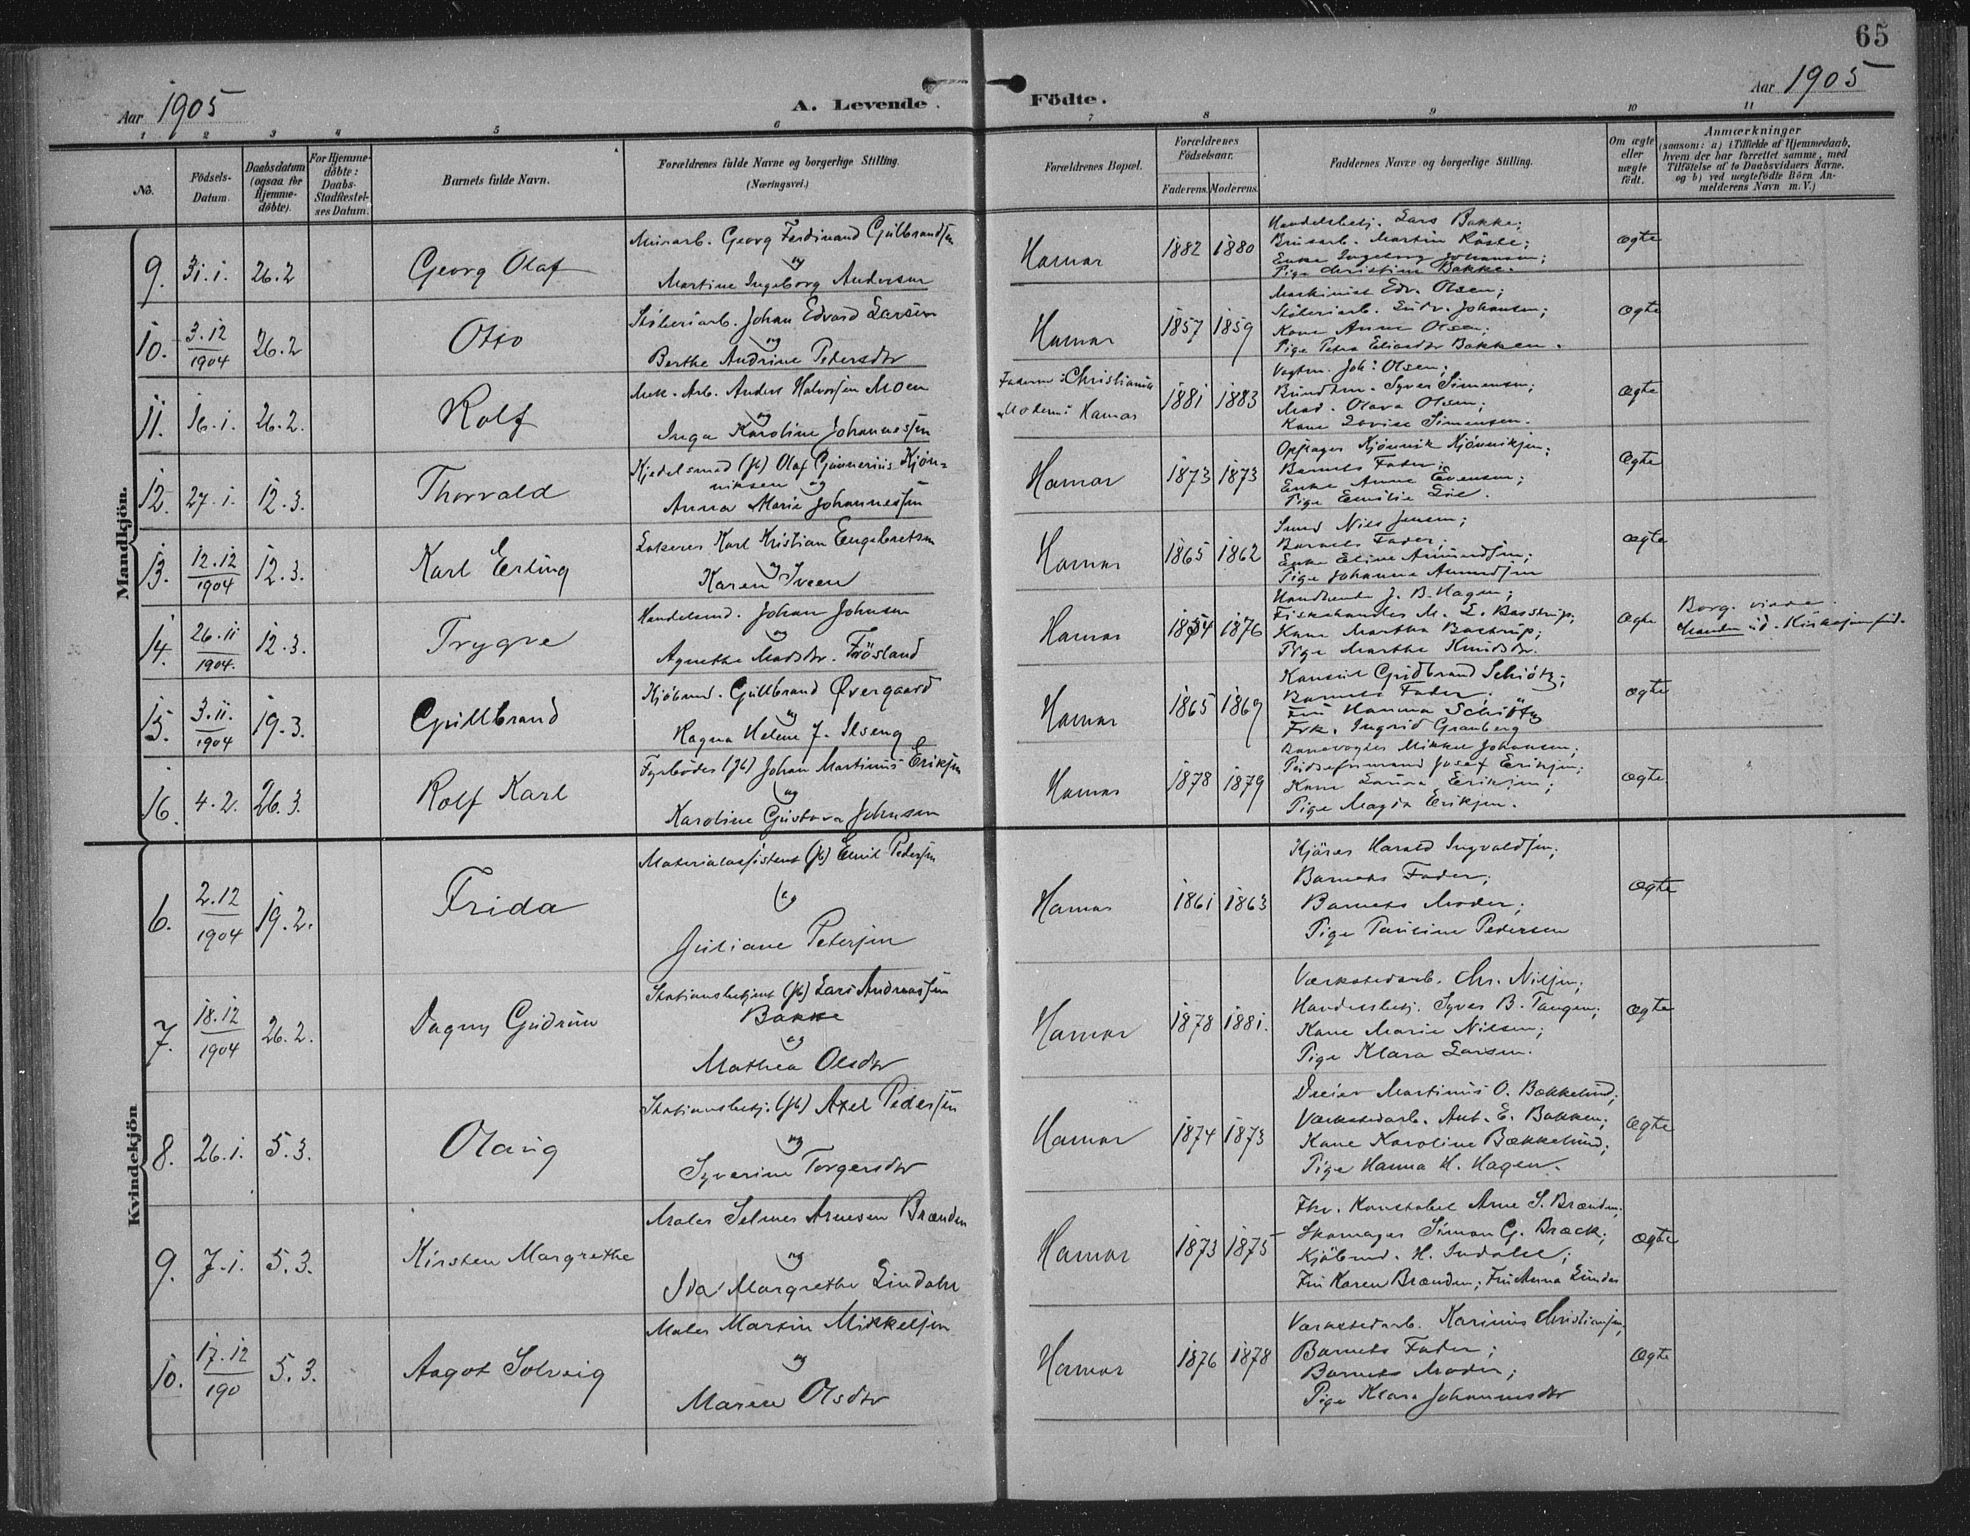 65
Aar 1905
A. Levende
Födte.
Aar 1905
1 2 3 4 5 6 7 8 9 10 11
No.
Födsels-
Datum.
Daabsdatum
(ogsaa for
Hjemme-
döbte).
For Hjemme-
döbte:
Daabs-
Stadfæstel-
ses Datum.
Barnets fulde Navn.
Forældrenes fulde Navne og borgerlige Stilling.
(Næringsvei.)
Forældrenes Bopæl.
Forældrenes
Födselsaar.
Faderens. Moderens.
Faddernes Navne og borgerlige Stilling.
Om ægte
eller
uægte
födt.
Anmærkninger
(saasom: a) i Tilfælde af Hjemmedaab,
hvem der har forrettet samme, med
Tilföielse af to Daabsvidners Navne,
og b) ved uægtefödte Börn An-
melderens Navn m. V.)
Mandkjön.
9. 31.1. 26.2 Georg Olaf
Murarb. Georg Ferdinand Gulbrandsen
og
Martine Ingeborg Andersen
Hamar 1882 1880
Handelsbetj. Lars Bakke;
Brusarb. Martin Röste;
Enke Ingeborg Johansen;
Pige Christine Bakke.
ægte
10. 3.12
1904 26.2 Otto
Støberiarb. Johan Edvard Larsen
og
Berthe Andrine Pedersdtr
Hamar 1857 1859
Maskinist Edv. Olsen;
Støberiarb. Ludv. Johansen;
Kone Anne Olsen;
Pige Petra Eliasdtr Bakken.
ægte
11. 16.1. 26.2. Rolf
Mek. Arb. Anders Halvorsen Moen
og
Inga Karoline Johannessen
Faderen: Christiania
Moderen: Hamar
1881 1883
Vogtm. Joh: Olsen;
Syver Simensen;
Mad. Olava Olsen;
Kone Lovise Simensen.
ægte
12. 27.1. 12.3. Thorvald
Kjedelsmed (Jb) Olaf Gunnerius Kjøn-
niksen og
Anna Marie Johannessen
Hamar 1873 1873
Opsager Kjønnik Kjønniksen;
Barnets Fader;
Enke Anne Evensen;
Pige Emilie Lie.
Ægte
13. 12.12
1904 12.3. Karl Erling
Karl Kristian Engebretsen
og
Karen Iveen
Hamar 1865 1862
Smed Nils Jensen;
Barnets Fader;
Enke Eline Amundsen;
Pige Johanna Amundsen
ægte
14. 26.11
1904. 12.3. Trygve
Handelsmd. Johan Johnsen
og
Agnethe Madsdtr. Frösland
Hamar 1834 1876
J. B. Hagen;
Fiskehandler M. L. Bastrup;
Kone Martha Bastrup;
Pige Marthe Knudsdtr.
Ægte
Borg. viede.
Manden ud.
15. 3.11.
1904 19.3. Gullbrand
Kjøbmd. Gullbrand Øvergaard
og
Ragna Helene J. Ilseng
Hamar 1865 1869
Konsul Gudbrand Schiøtz;
Barnets Fader;
Fru Hanna Schiøtz
Frk. Ingrid Granberg
ægte
16. 4.2. 26.3. Rolf Karl
Fyrbøder (Jb) Johan Martinus Eriksen
og
Karoline Gustava Johnsen
Hamar 1878 1879
Banevogter Mikkel Johansen;
Pudseformand Josef Eriksen;
Kone Laura Eriksen;
Pige Magda Eriksen.
ægte
Kvindekjön
6. 2.12
1904 19.2. Frida
Materialassistent (Jb) Emil Pedersen
og
Juliane Petersen
Hamar 1861 1863
Kjører Harald Ingvaldsen;
Barnets Fader;
Barnets Moder;
Pige Pauline Pedersen
Ægte
7. 18.12
1904 26.2. Dagny Gudrun
Stationsbetjent (Jb) Lars Andreassen
Bakke
og
Mathea Olsdtr
Hamar 1878 1881.
Værkstedarb. Chr. Nilsen;
Handelsbetj. Syver B. Tangen;
Kone Marie Nilsen;
Pige Klara Larsen.
Ægte
8. 26.1. 5.3. Olaug
Stationsbetj. (Jb) Axel Pedersen
og
Syverine Torgersdtr
Hamar 1874 1873
Dreier Martinus O. Bækkelund;
Værkstedarb. Ant. E. Bakken;
Kone Karoline Bækkelund;
Pige Hanna H. Hagen.
Ægte
9. 7.1. 5.3. Kirsten Margrethe
Maler Selmer Arnesen Brænden
og
Ida Margrethe Lindahl
Hamar 1873 1875
Fhv. Konstabel Arne S. Brænden;
Skomager Simon G. Bræck;
Kjøbmd. H. Indahl;
Fru Karen Brænden; Fru Anna Lunder
Ægte
10. 17.12
190 5.3. Aagot Solveig
Maler Martin Mikkelsen
og
Maren Olsdtr
Hamar 1876 1878
Værkstedarb. Karinus Christiansen,
Barnets Fader;
Barnets Moder;
Pige Klara Johannesdtr
Ægte